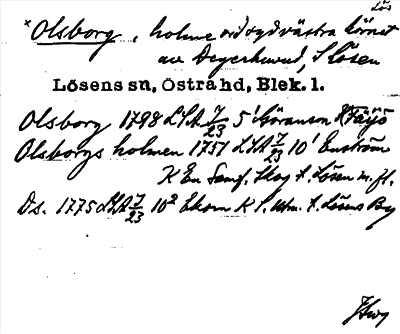 Lös
× Olsborg, holme ordsydvästra hörnet
av Degerhuvud, S Lösen
Lösens sn, Östra hd, Blek. l.
Olsborg 1798 LSA 7/23 5¹ Göranson K Färjö
Olsborgs holmen 1751 LSA 7/23 10¹ Enström
K En Saml. Skog t. Lösen m. fl.
Ds. 1775 LSA 7/23 10² Ekorn K S. Utm. t. Lösens By